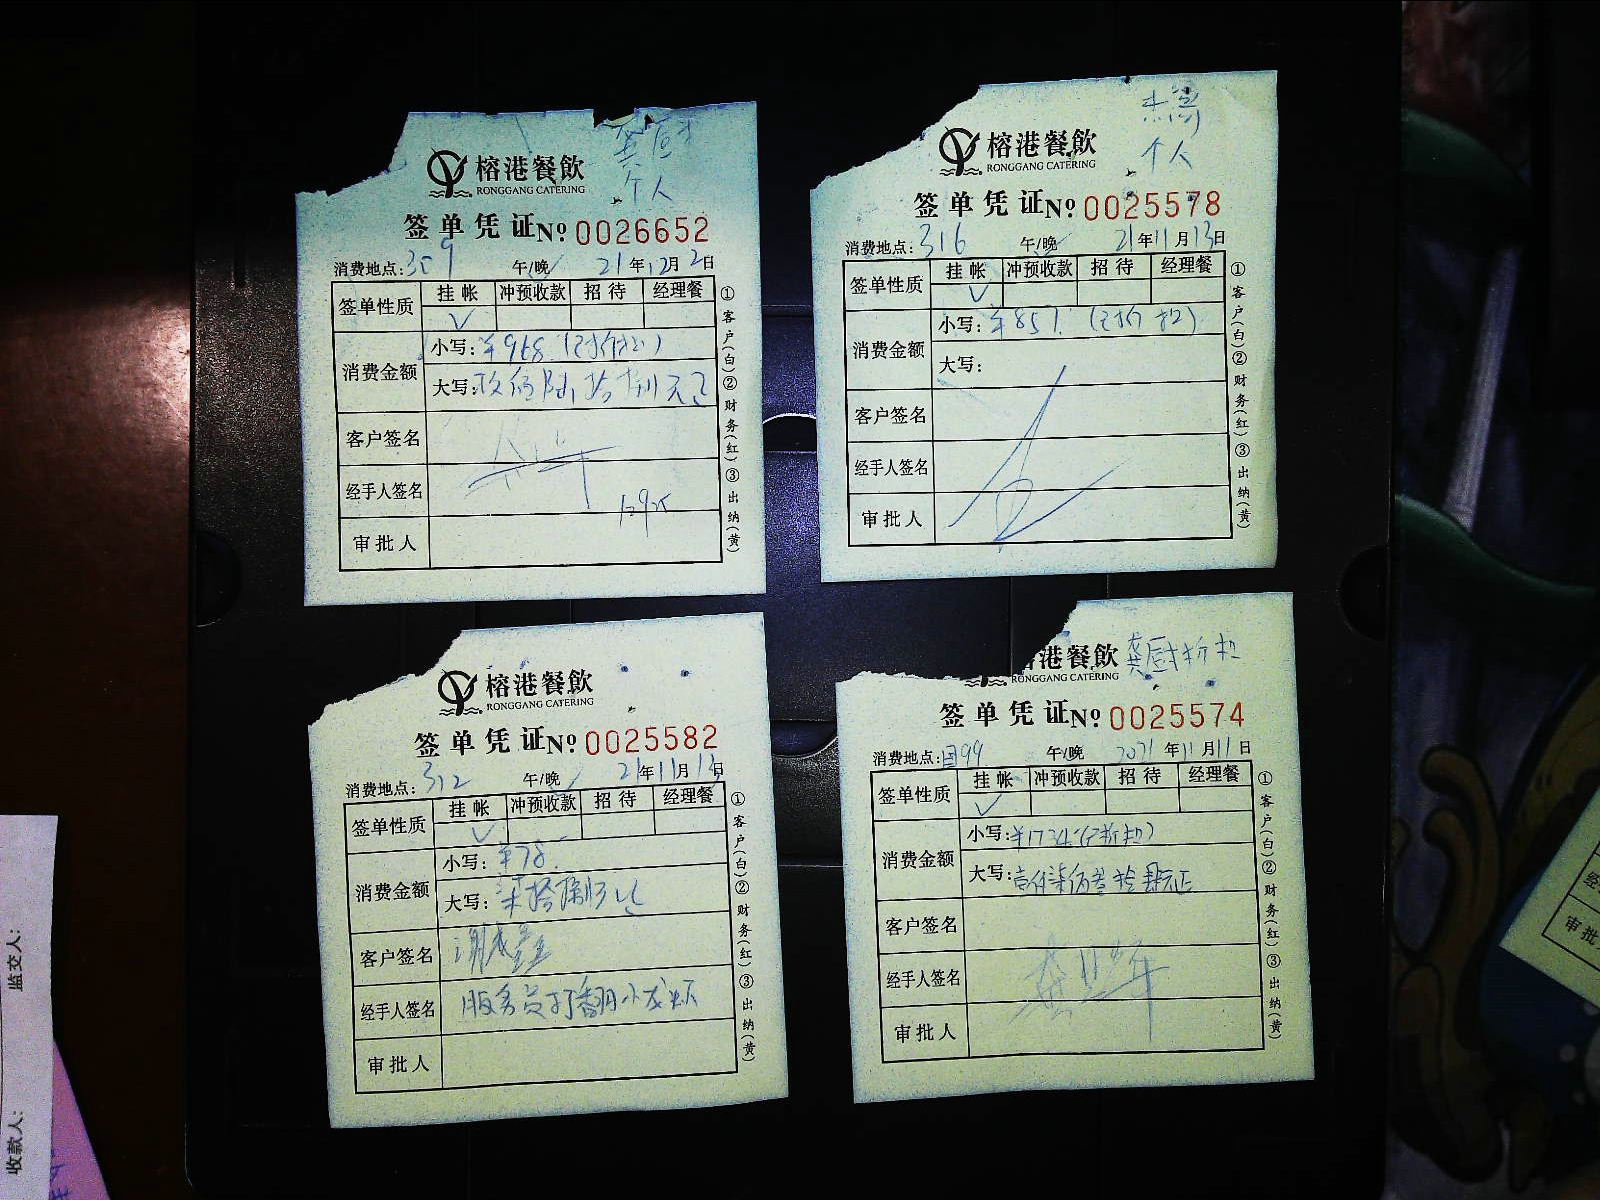 榕港餐飲
RONGGANG CATERING
个人
签单凭证№ 0026652
消费地点: 309 午/晚 21年12月2日
签单性质 挂帐 冲预收款 招待 经理餐
√
消费金额 小写: ¥968.(已折扣)
大写: 玖佰陆拾捌元正
客户签名
经手人签名
审批人
①客户(白)②财务(红)③出纳(黄)
榕港餐飲
RONGGANG CATERING
个人
签单凭证№ 0025578
消费地点: 316 午/晚 21年11月13日
签单性质 挂帐 冲预收款 招待 经理餐
√
消费金额 小写: ¥851.(已折扣)
大写:
客户签名
经手人签名
审批人
①客户(白)②财务(红)③出纳(黄)
榕港餐飲
RONGGANG CATERING
签单凭证№ 0025582
消费地点: 312 午/晚 21年11月13日
签单性质 挂帐 冲预收款 招待 经理餐
√
消费金额 小写: ¥78.
大写: 柒拾捌元正
客户签名
经手人签名 服务员打翻小龙虾
审批人
①客户(白)②财务(红)③出纳(黄)
港餐飲 龚厨折扣
RONGGANG CATERING
签单凭证№ 0025574
消费地点: 99 午/晚 2021年11月11日
签单性质 挂帐 冲预收款 招待 经理餐
√
消费金额 小写: ¥1734.(已折扣)
大写: 壹仟柒佰叁拾肆元正
客户签名
经手人签名
审批人
①客户(白)②财务(红)③出纳(黄)
监交人:
收款人:
审批